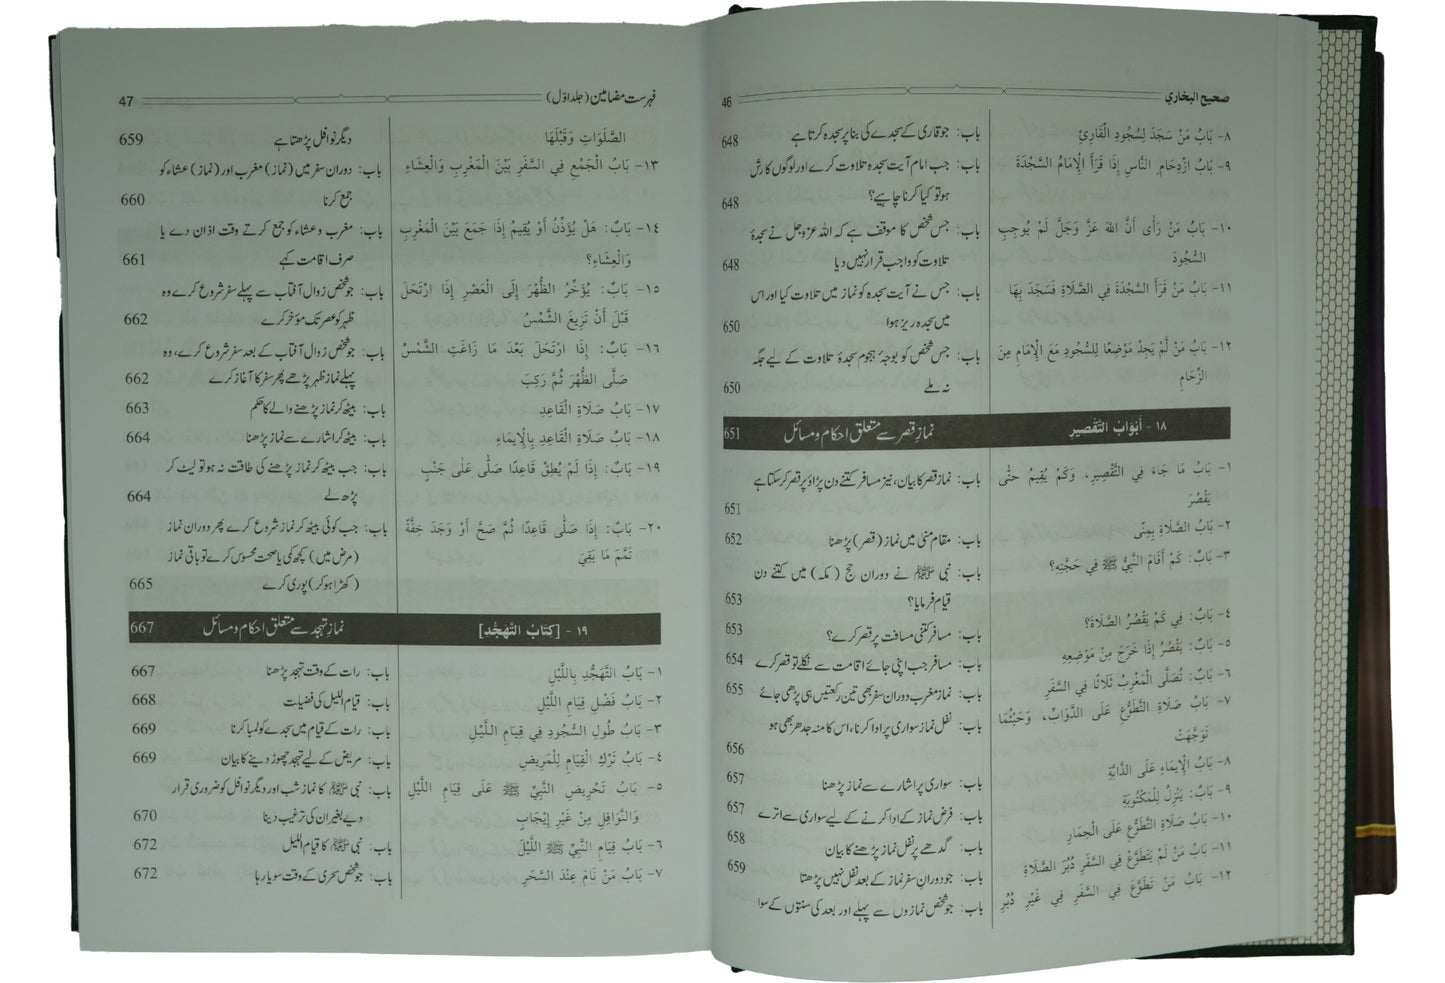 صحيح البخاري 46
٨- بَابُ مَنْ سَجَدَ لِسُجُودِ الْقَارِئِ باب: جو قاری کے سجدے کی بنا پر سجدہ کرتا ہے 648
٩- بَابُ ازْدِحَامِ النَّاسِ إِذَا قَرَأَ الْإِمَامُ السَّجْدَةَ باب: جب امام آیت سجدہ تلاوت کرے اور لوگوں کا رش
ہو تو کیا کرنا چاہیے؟ 648
١٠- بَابُ مَنْ رَأَى أَنَّ اللهَ عَزَّ وَجَلَّ لَمْ يُوجِبِ باب: جس شخص کا موقف ہے کہ اللہ عزوجل نے سجدۂ
السُّجُودَ تلاوت کو واجب قرار نہیں دیا 648
١١- بَابُ مَنْ قَرَأَ السَّجْدَةَ فِي الصَّلَاةِ فَسَجَدَ بِهَا باب: جس نے آیت سجدہ کو نماز میں تلاوت کیا اور اس
میں سجدہ ریز ہوا 650
١٢- بَابُ مَنْ لَمْ يَجِدْ مَوْضِعًا لِلسُّجُودِ مَعَ الْإِمَامِ مِنَ باب: جس شخص کو بوجۂ ہجوم سجدۂ تلاوت کے لیے جگہ
الزِّحَامِ نہ ملے 650
١٨- أَبْوَابُ التَّقْصِيرِ نماز قصر سے متعلق احکام و مسائل 651
١- بَابُ مَا جَاءَ فِي التَّقْصِيرِ، وَكَمْ يُقِيمُ حَتَّى باب: نماز قصر کا بیان، نیز مسافر کتنے دن پڑاؤ پر قصر کر سکتا ہے
يَقْصُرَ 651
٢- بَابُ الصَّلَاةِ بِمِنًى باب: مقام منیٰ میں نماز (قصر) پڑھنا 652
٣- بَابٌ: كَمْ أَقَامَ النَّبِيُّ ﷺ فِي حَجَّتِهِ؟ باب: نبی ﷺ نے دوران حج (مکہ) میں کتنے دن
قیام فرمایا؟ 653
٤- بَابٌ: فِي كَمْ يَقْصُرُ الصَّلَاةَ؟ باب: مسافر کتنی مسافت پر قصر کرے؟ 653
٥- بَابٌ: يَقْصُرُ إِذَا خَرَجَ مِنْ مَوْضِعِهِ باب: مسافر جب اپنی جائے اقامت سے نکلے تو قصر کرے 654
٦- بَابٌ: تُصَلَّى الْمَغْرِبُ ثَلَاثًا فِي السَّفَرِ باب: نماز مغرب دوران سفر بھی تین رکعتیں ہی پڑھی جائے 655
٧- بَابُ صَلَاةِ التَّطَوُّعِ عَلَى الدَّوَابِّ، وَحَيْثُمَا باب: نفل نماز سواری پر ادا کرنا، اس کا منہ جدھر بھی ہو
تَوَجَّهَتْ 656
٨- بَابُ الْإِيمَاءِ عَلَى الدَّابَّةِ باب: سواری پر اشارے سے نماز پڑھنا 657
٩- بَابٌ: يَنْزِلُ لِلْمَكْتُوبَةِ باب: فرض نماز کے ادا کرنے کے لیے سواری سے اترے 657
١٠- بَابُ صَلَاةِ التَّطَوُّعِ عَلَى الْحِمَارِ باب: گدھے پر نفل نماز پڑھنے کا بیان 658
١١- بَابُ مَنْ لَمْ يَتَطَوَّعْ فِي السَّفَرِ دُبُرَ الصَّلَاةِ باب: جو دوران سفر نماز کے بعد نفل نہیں پڑھتا 659
١٢- بَابُ مَنْ تَطَوَّعَ فِي السَّفَرِ فِي غَيْرِ دُبُرِ باب: جو شخص نمازوں سے پہلے اور بعد کی سنتوں کے سوا
فہرست مضامین (جلد اوّل) 47
الصَّلَوَاتِ وَقَبْلَهَا دیگر نوافل پڑھتا ہے 659
١٣- بَابُ الْجَمْعِ فِي السَّفَرِ بَيْنَ الْمَغْرِبِ وَالْعِشَاءِ باب: دوران سفر میں (نماز) مغرب اور (نماز) عشاء کو
جمع کرنا 660
١٤- بَابٌ: هَلْ يُؤَذِّنُ أَوْ يُقِيمُ إِذَا جَمَعَ بَيْنَ الْمَغْرِبِ باب: مغرب و عشاء کو جمع کرتے وقت اذان دے یا
وَالْعِشَاءِ؟ صرف اقامت کہے 661
١٥- بَابٌ: يُؤَخِّرُ الظُّهْرَ إِلَى الْعَصْرِ إِذَا ارْتَحَلَ باب: جو شخص زوال آفتاب سے پہلے سفر شروع کرے وہ
قَبْلَ أَنْ تَزِيغَ الشَّمْسُ ظہر کو عصر تک مؤخر کرے 662
١٦- بَابٌ: إِذَا ارْتَحَلَ بَعْدَ مَا زَاغَتِ الشَّمْسُ باب: جو شخص زوال آفتاب کے بعد سفر شروع کرے، وہ
صَلَّى الظُّهْرَ ثُمَّ رَكِبَ پہلے نماز ظہر پڑھے پھر سفر کا آغاز کرے 662
١٧- بَابُ صَلَاةِ الْقَاعِدِ باب: بیٹھ کر نماز پڑھنے والے کا حکم 663
١٨- بَابُ صَلَاةِ الْقَاعِدِ بِالْإِيمَاءِ باب: بیٹھ کر اشارے سے نماز پڑھنا 664
١٩- بَابٌ: إِذَا لَمْ يُطِقْ قَاعِدًا صَلَّى عَلَى جَنْبٍ باب: جب بیٹھ کر نماز پڑھنے کی طاقت نہ ہو تو لیٹ کر
پڑھ لے 664
٢٠- بَابٌ: إِذَا صَلَّى قَاعِدًا ثُمَّ صَحَّ أَوْ وَجَدَ خِفَّةً باب: جب کوئی بیٹھ کر نماز شروع کرے پھر دوران نماز
تَمَّمَ مَا بَقِيَ (مرض میں) کچھ کمی یا صحت محسوس کرے تو باقی نماز
(کھڑا ہو کر) پوری کرے 665
١٩- [كِتَابُ التَّهَجُّدِ] نماز تہجد سے متعلق احکام و مسائل 667
١- بَابُ التَّهَجُّدِ بِاللَّيْلِ باب: رات کے وقت تہجد پڑھنا 667
٢- بَابُ فَضْلِ قِيَامِ اللَّيْلِ باب: قیام اللیل کی فضیلت 668
٣- بَابُ طُولِ السُّجُودِ فِي قِيَامِ اللَّيْلِ باب: رات کے قیام میں سجدے کو لمبا کرنا 669
٤- بَابُ تَرْكِ الْقِيَامِ لِلْمَرِيضِ باب: مریض کے لیے تہجد چھوڑ دینے کا بیان 669
٥- بَابُ تَحْرِيضِ النَّبِيِّ ﷺ عَلَى قِيَامِ اللَّيْلِ باب: نبی ﷺ کا نماز شب اور دیگر نوافل کو ضروری قرار
وَالنَّوَافِلِ مِنْ غَيْرِ إِيجَابٍ دیے بغیر ان کی ترغیب دینا 670
٦- بَابُ قِيَامِ النَّبِيِّ ﷺ اللَّيْلَ باب: نبی ﷺ کا قیام اللیل 672
٧- بَابُ مَنْ نَامَ عِنْدَ السَّحَرِ باب: جو شخص سحری کے وقت سویا رہا 672